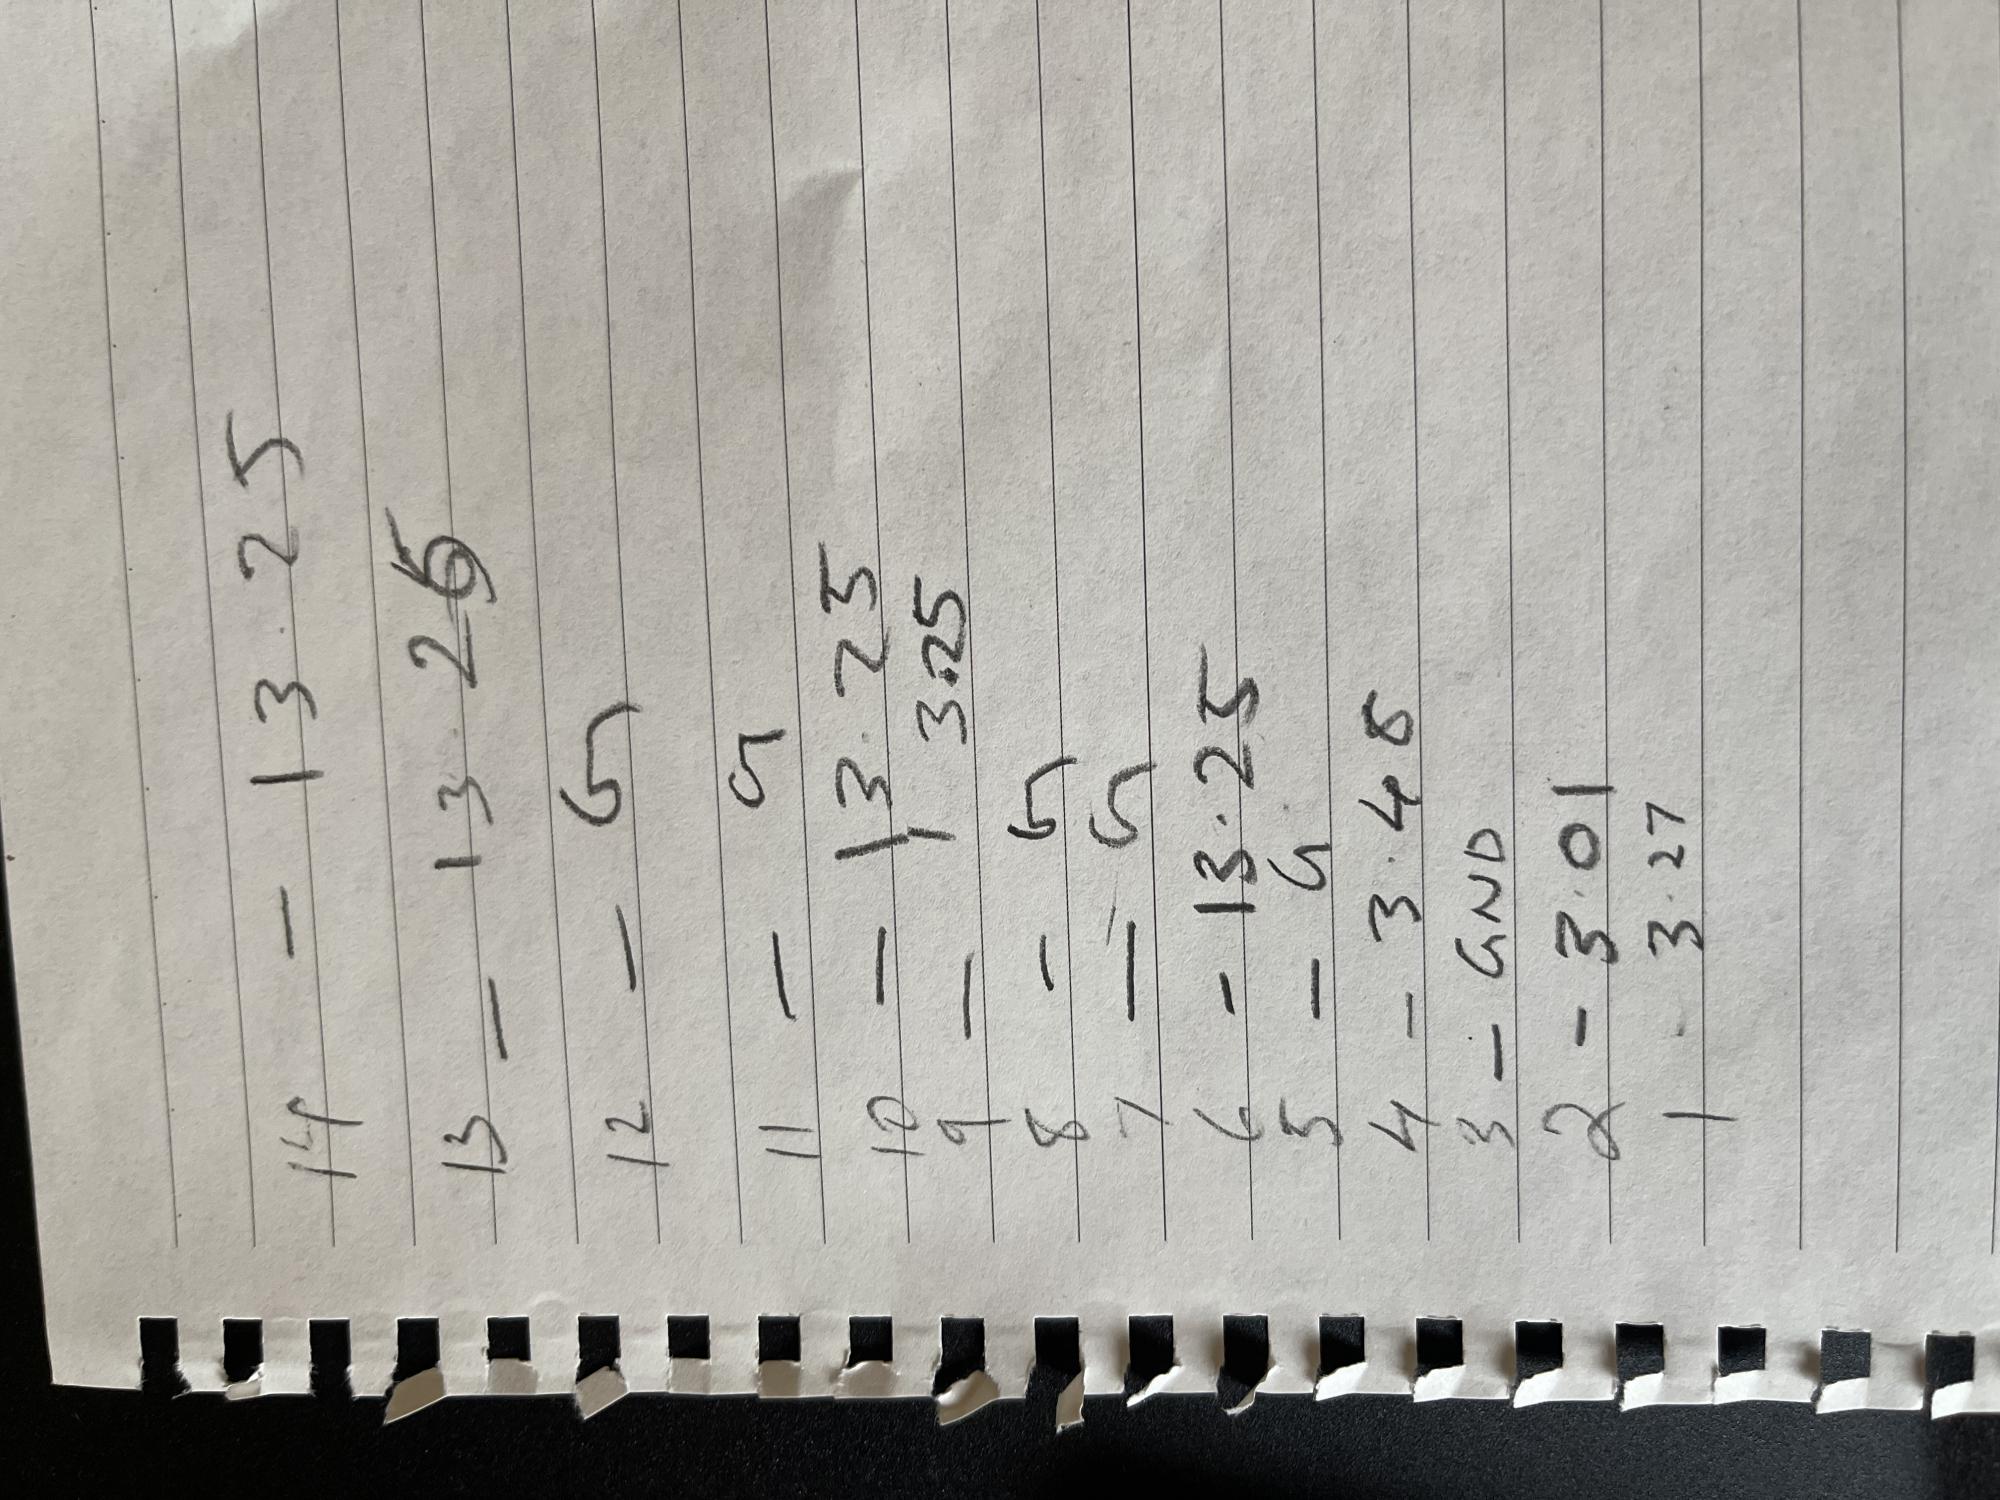 14 - 13.25
13 - 13.25
12 - G
11 - G
10 - 13.25
9 - 13.25
8 - G
7 - G
6 - 13.25
5 - G
4 - 3.48
3 - GND
2 - 3.01
1 - 3.27